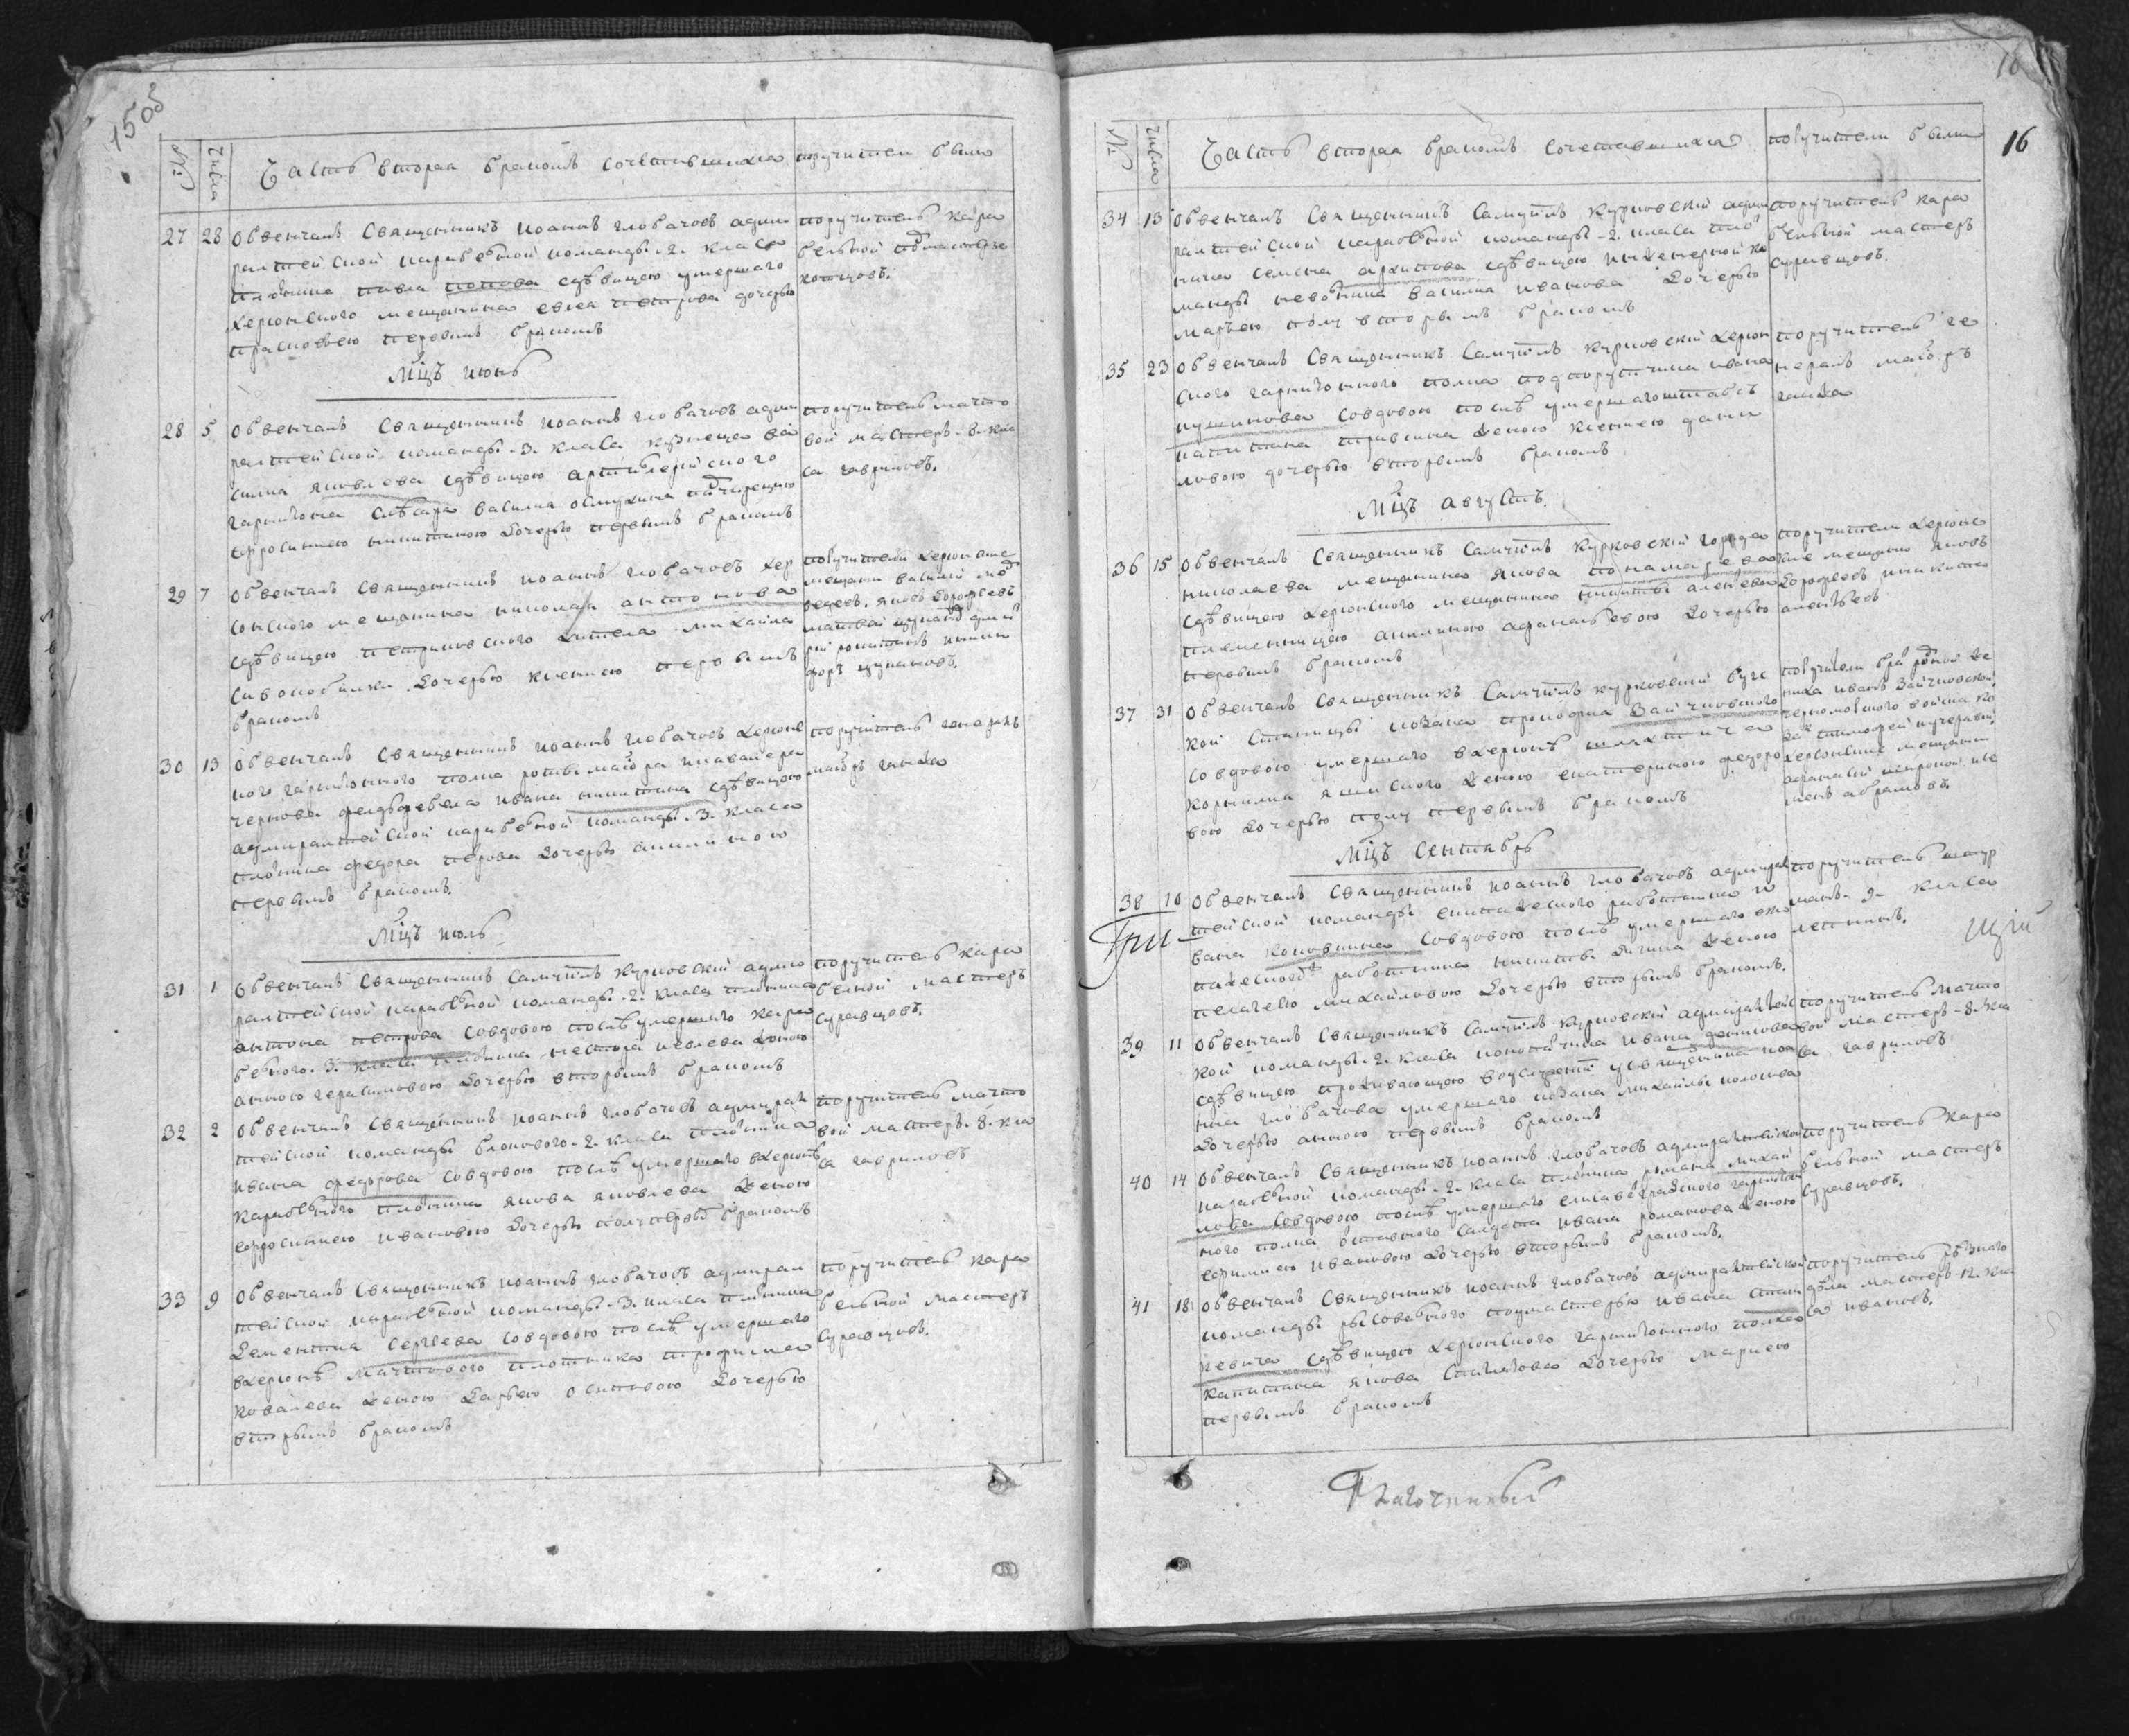 15об
№ Числа Часть вторая бракомъ сочетавшихся поручители были
27 28 Обвенчалъ Священникъ иоаннъ глобачовъ адми
ралтейской карабельной команды 2. класа
плотника павла попова сдѣвицею умершаго
херсонского мещанина евсея петрова дочерью
прасковьею первымъ бракомъ
поручитель кара
бельной подмастерье
Мцъ июнь
28 5 Обвенчалъ Священникъ иоаннъ глобачовъ адми
ралтейской команды 3. класа кузнеца ва
силиа яковлева сдѣвицею артилерийского
гарнизона слесаря василиа
ефросиниею никитиною дочерью первымъ бракомъ
поручитель мачто
вой мастеръ 8. кла
са гавриловъ.
29 7 Обвенчалъ Священникъ иоаннъ глобачовъ хер
сонского мещанина николая антонова
сдѣвицею петриковского жителя михайла
дочерью ксениею первымъ
бракомъ
поручители херсонские
мещани василий
яковъ дорофеевъ
30 13 Обвенчалъ Священникъ иоаннъ глобачовъ херсонс
кого гарнизонного полка роты маиора и кавалера
чернова фелдфебеля ивана никитина сдѣвицею
адмиралтейской карабельной команды 3. класа
плотника федора петрова дочерью акилиною
первымъ бракомъ.
поручитель генералъ
маиоръ ганжа
Мцъ июль
31 1 Обвенчалъ Священникъ Самуилъ Курковский адми
ралтейской карабельной команды 2. класа плотника
антона петрова совдовою послѣ умершаго кара
бельного 3. класа плотника нестора женою
анною герасимовою дочерью вторымъ бракомъ
поручитель кара
бельной мастеръ
Суравцовъ.
32 2 Обвенчалъ Священникъ иоаннъ глобачовъ адмирал
тейской команды блокового 2. класа плотника
ивана федорова совдовою послѣ умершаго вхерсонѣ
карабельного плотника якова яковлева женою
ефросиниею ивановою дочерью бракомъ
поручитель мачто
вой мастеръ 8. кла
са гавриловъ
33 9 Обвенчалъ Священникъ иоаннъ глобачовъ адмирал
тейской карабельной команды 3. класа плотника
дементия сергеева совдовою послѣ умершаго
вхерсонѣ мачтового плотника трофима
ковалева женою дарьею осиповою дочерью
вторымъ бракомъ
поручитель кара
бельной мастеръ
Суравцовъ.
16
16
№ Числа Часть вторая бракомъ сочетавшихся поручители были
34 13 Обвенчалъ Священникъ Самуилъ Курковский адми
ралтейской карабельной команды 2. класа плот
ника семена архипова сдѣвицею инженерной ко
манды василиа иванова дочерью
марьею вторымъ бракомъ
поручитель кара
бельной мастеръ
Суравцовъ.
35 23 Обвенчалъ Священникъ Самуилъ Курковский херсон
ского гарнизонного полка подпоручика ивана
совдовою послѣ умершаго штабсъ
капитана женою ксениею дани
ловою дочерью вторымъ бракомъ
поручитель ге
нералъ маиоръ
ганжа
Мцъ августъ.
36 15 Обвенчалъ Священникъ Самуилъ Курковский города
николаева мещанина якова понамарева
сдѣвицею херсонского мещанина никиты алексеева
племянницею акилиною афанасьевою дочерью
первымъ бракомъ
поручители херсонс
кие мещани яковъ
дорофеевъ и никита
алексеевъ
37 31 Обвенчалъ Священникъ Самуилъ Курковский
кой станицы козака прокофиа зайчковского
совдовою умершаго вхерсонѣ шляхтича
корнилиа женою екатериною федоро
вою дочерью первымъ бракомъ
поручители братъ родной же
ниха иванъ зайчковской,
черноморского войска ко
закъ тимофей
херсонские мещани
абрамовъ.
Мцъ Сентябрь
38 10 Обвенчалъ Священникъ иоаннъ глобачовъ адмирал
тейской команды екипажеского работника и
вана коновкина совдовою послѣ умершаго еки
пажеского работника никиты женою
пелагеею михайловою дочерью вторымъ бракомъ.
поручитель штур
манъ 9. класа
При-
39 11 Обвенчалъ Священникъ Самуилъ Курковский адмиралтейс
кой команды 2. класа конопатчика ивана
сдѣвицею проживающею усвященника иоа
нна глобачова умершаго козака михайлы
дочерью анною первымъ бракомъ
поручитель мачто
вой мастеръ 8. кла
са гавриловъ
40 14 Обвенчалъ Священникъ иоаннъ глобачовъ адмиралтейской
карабельной команды 2. класа плотника романа михай
лова совдовою послѣ умершаго елисаветградского гарнизон
ного полка отставного салдата ивана романова женою
ефимиею ивановою дочерью вторымъ бракомъ.
поручитель кара
бельной мастеръ
Суравцовъ.
41 18 Обвенчалъ Священникъ иоаннъ глобачовъ адмиралтейской
команды подмастерью ивана стан
кевича сдѣвицею херсонского гарнизонного полка
капитана якова дочерью мариею
первымъ бракомъ
поручитель рѣзного
дѣла мастеръ 12. кла
са ивановъ.
Благочинный